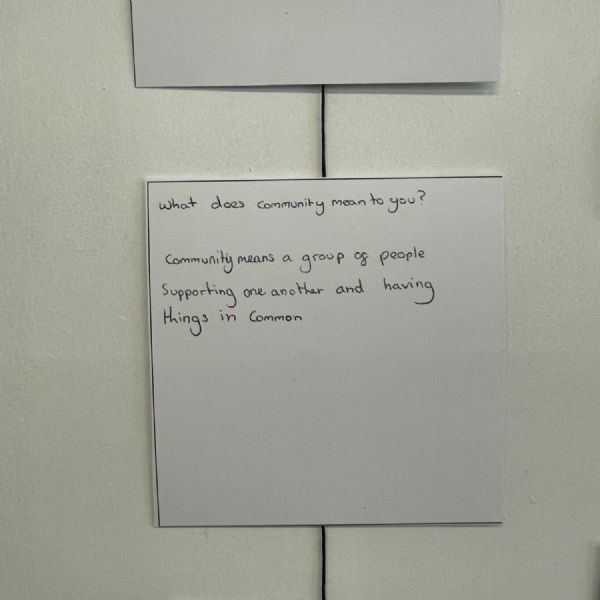 What does community mean to you?
Community means a group of people
Supporting one another and having
things in Common